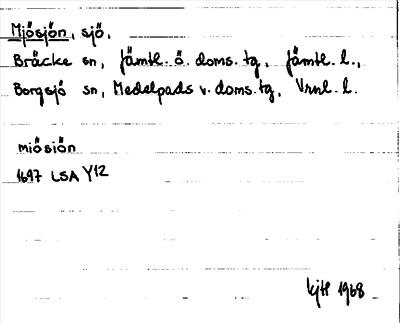 Mjösjön, sjö.
Bräcke sn, Jämtl. ö. doms. tg, Jämtl. l.,
Borgsjö sn, Medelpads v. doms. tg, Vrnl. l.
miösiön
1697 LSA Y12
kjH 1968